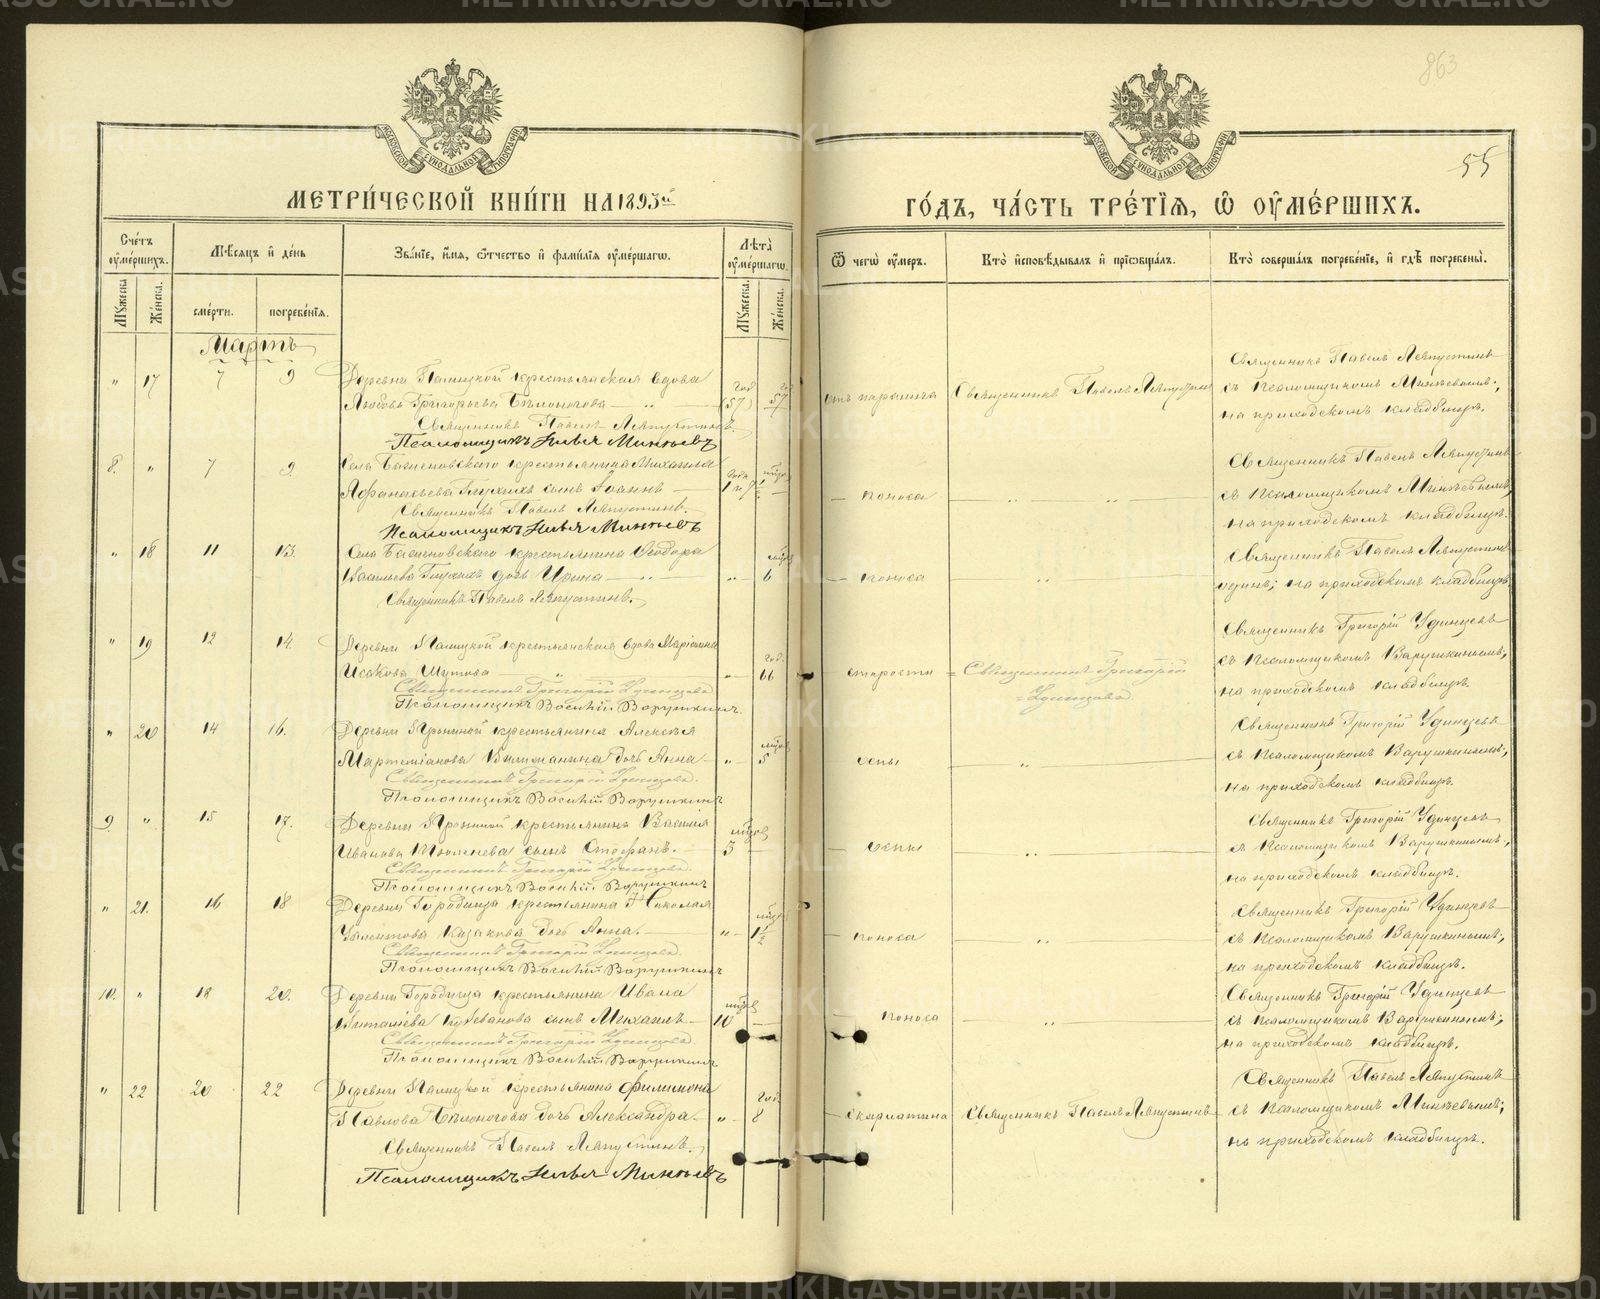 863
55
МЕТРИ́ЧЕСКОЙ КНИ́ГИ НА 1893й
ГО́ДЪ, ЧА́СТЬ ТРЕ́ТІѦ, Ѿ ОУ҆МЕ́РШИХЪ.
Сче́тъ оу҆ме́ршихъ.
Мѣ́сѧцъ и҆ де́нь
Зва́нїе, и҆́мѧ, ѻ҆́тчество и҆ фами́лїѧ оу҆ме́ршагѡ.
Лѣ́та оу҆ме́ршагѡ.
Ѿ чегѡ̀ оу҆́меръ.
Кто̀ и҆сповѣ́дывалъ и҆ прїѡбща́лъ.
Кто̀ соверша́лъ погребе́нїе, и҆ гдѣ̀ погребены̀.
Мꙋ́жеска.
Же́нска.
сме́рти.
погребе́нїѧ.
Мꙋ́жеска.
Же́нска.
Мартъ
" 17 7 9 Деревни крестьянская вдова
Любовь Григорьева Бѣлоногова (57) 57
Священникъ Павелъ Ляпустинъ.
Псаломщикъ Илья Минѣевъ
Священникъ Павелъ Ляпустинъ
Священникъ Павелъ Ляпустинъ
съ псаломщикомъ Минѣевымъ,
на приходскомъ кладбищѣ.
8. " 7 9 Села крестьянина Михаила
Афанасьева Глухихъ сынъ Іоаннъ
Священникъ Павелъ Ляпустинъ.
Псаломщикъ Илья Минѣевъ
— поноса
Священникъ Павелъ Ляпустинъ
съ псаломщикомъ Минѣевымъ,
на приходскомъ кладбищѣ.
" 18 11 13. Села крестьянина Ѳеодора
Васильева Глухихъ дочь Ирина " 6
Священникъ Павелъ Ляпустинъ.
— поноса
Священникъ Павелъ Ляпустинъ
одинъ, на приходскомъ кладбищѣ
" 19 12 14. Деревни крестьянская вдова
Исакова Шутова " 66
Священникъ Григорій Удинцевъ
Псаломщикъ Василій Варушкинъ.
старости
Священникъ Григорій
Удинцевъ
Священникъ Григорій Удинцевъ
съ псаломщикомъ Варушкинымъ,
на приходскомъ кладбищѣ.
" 20 14 16. Деревни крестьянина Алексѣя
дочь Анна " 5
Священникъ Григорій Удинцевъ.
Псаломщикъ Василій Варушкинъ
оспы
Священникъ Григорій Удинцевъ
съ псаломщикомъ Варушкинымъ,
на приходскомъ кладбищѣ.
9 " 15 17. Деревни крестьянина Василія
Иванова сынъ Стефанъ. 3
Священникъ Григорій Удинцевъ.
Псаломщикъ Василій Варушкинъ
— оспы
Священникъ Григорій Удинцевъ
съ псаломщикомъ Варушкинымъ,
на приходскомъ кладбищѣ.
" 21. 16 18 Деревни Городища крестьянина Николая
Казакова дочь Анна. " 1½
Священникъ Григорій Удинцевъ.
Псаломщикъ Василій Варушкинъ
— поноса
Священникъ Григорій Удинцевъ
съ псаломщикомъ Варушкинымъ,
на приходскомъ кладбищѣ.
10. " 18 20. Деревни Городища крестьянина Ивана
сынъ Михаилъ 10
Священникъ Григорій Удинцевъ
Псаломщикъ Василій Варушкинъ
поноса
Священникъ Григорій Удинцевъ
съ псаломщикомъ Варушкинымъ,
на приходскомъ кладбищѣ.
" 22 20 22 Деревни крестьянина Филимона
Павлова Бѣлоногова дочь Александра. " 8
Священникъ Павелъ Ляпустинъ.
Псаломщикъ Илья Минѣевъ
— скарлатина
Священникъ Павелъ Ляпустинъ
Священникъ Павелъ Ляпустинъ
съ псаломщикомъ Минѣевымъ,
на приходскомъ кладбищѣ.
METRIKI.GASO-URAL.RU